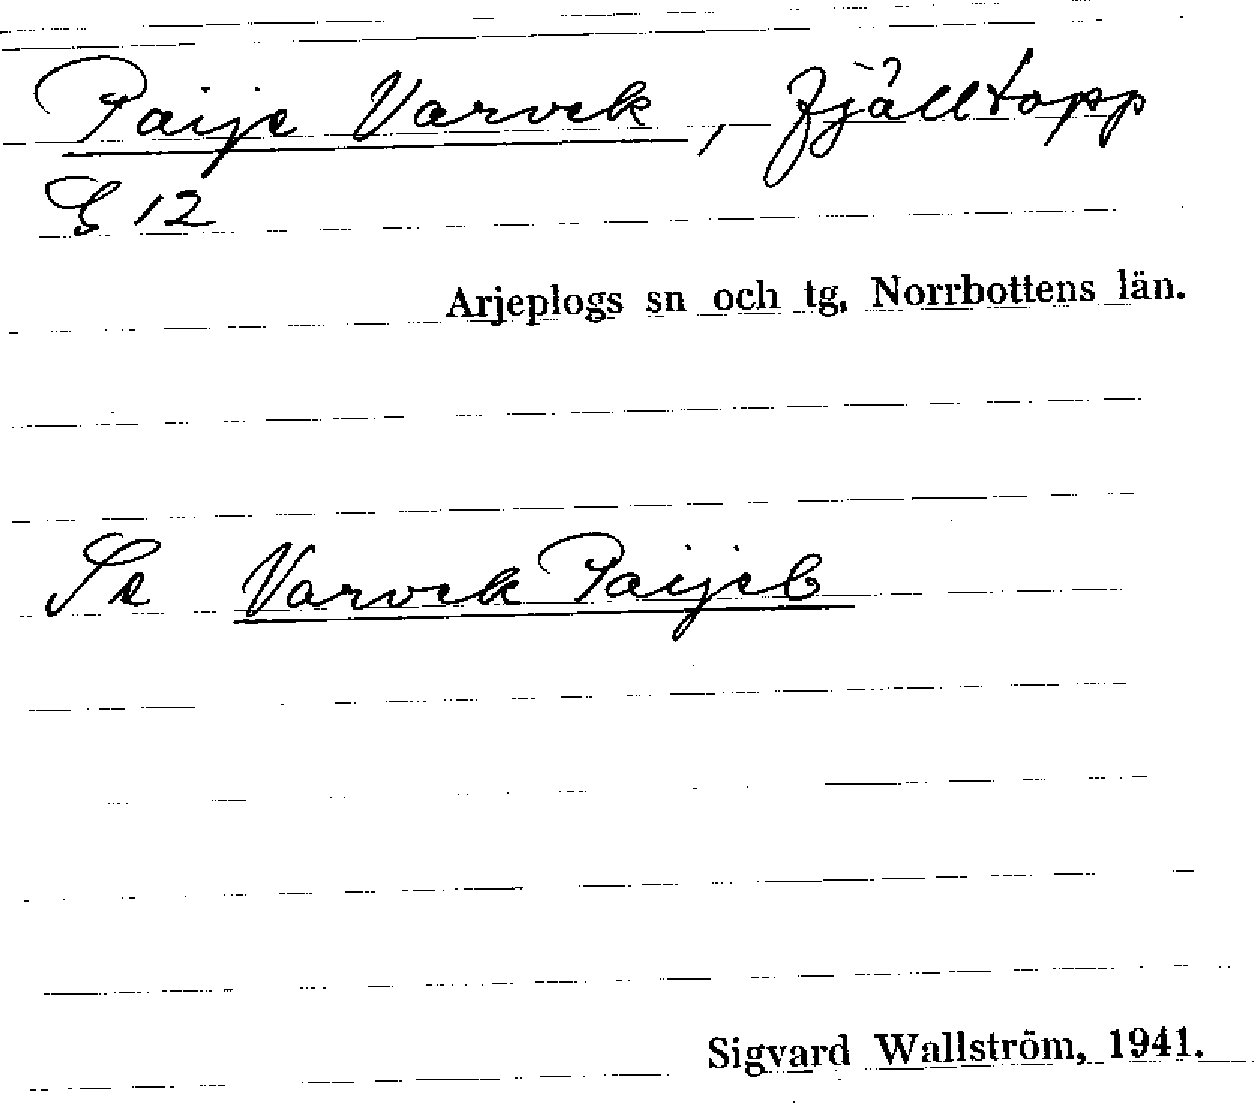 Paije Varvek, fjälltopp
G 12
Arjeplogs sn och tg, Norrbottens län.
Se Varvek Paijeb
Sigvard Wallström, 1941.